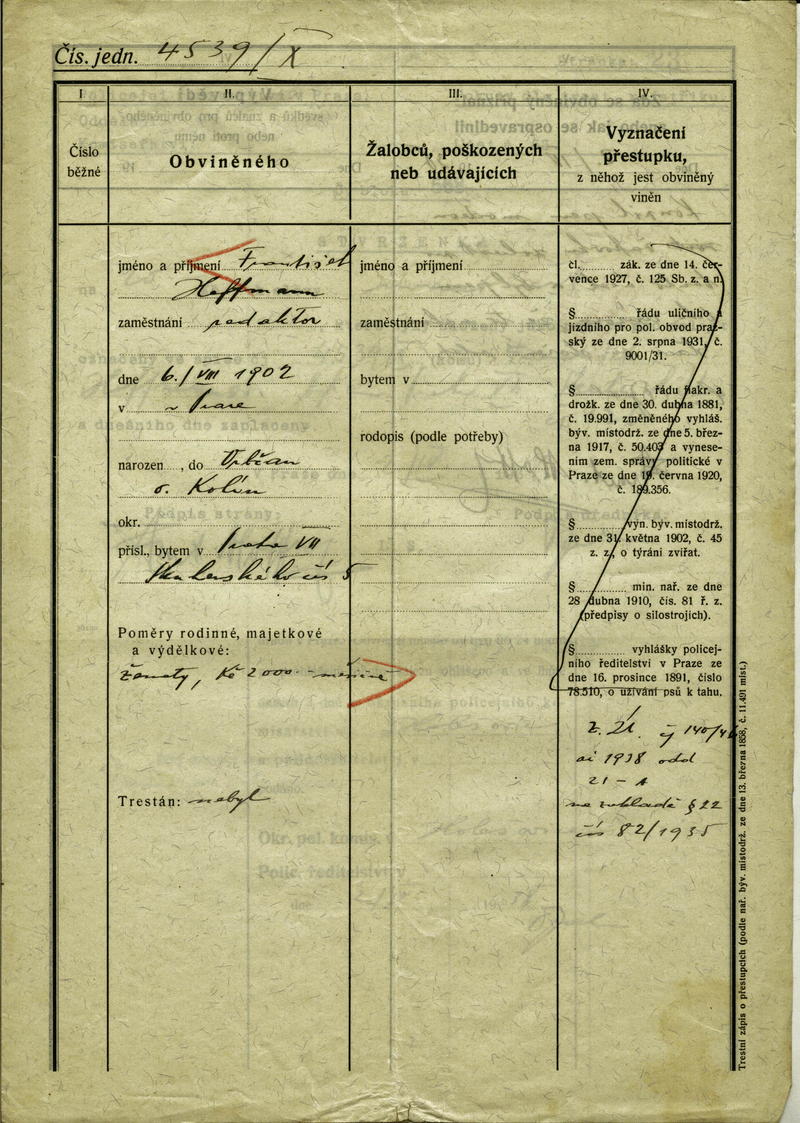 Čís. jedn. 4539/X
I.
Číslo
běžné
II.
Obviněného
III.
Žalobců, poškozených
neb udávajících
IV.
Vyznačení
přestupku,
z něhož jest obviněný
viněn
jméno a příjmení František
Hoffmann
zaměstnání redaktor
dne 6./VIII 1902
v v Praze
narozen , do
o. Kolín
okr.
přísl., bytem v Praha VII
čís 5
Poměry rodinné, majetkové
a výdělkové:
ženatý, Kč 2000.- měsíčně
Trestán: nebyl
jméno a příjmení
zaměstnání
bytem v
rodopis (podle potřeby)
čl. zák. ze dne 14. čer-
vence 1927, č. 125 Sb. z. a n.
§ řádu uličního a
jízdního pro pol. obvod praž-
ský ze dne 2. srpna 1931, č.
9001/31.
§ řádu fiakr. a
drožk. ze dne 30. dubna 1881,
č. 19.991, změněného vyhláš.
býv. místodrž. ze dne 5. břez-
na 1917, č. 50.403 a vynese-
ním zem. správy politické v
Praze ze dne 19. června 1920,
č. 189.356.
§ vyn. býv. místodrž.
ze dne 31. května 1902, č. 45
z. z., o týrání zvířat.
§ min. nař. ze dne
28 dubna 1910, čís. 81 ř. z.
(předpisy o silostrojích).
§ vyhlášky policej-
ního ředitelství v Praze ze
dne 16. prosince 1891, číslo
78.510, o užívání psů k tahu.
1938 odd
21 - A
na základě § 22
čís 82/1935
Trestní zápis o přestupcích (podle nař. býv. místodrž. ze dne 13. března 1858, č. 11.491 míst.)